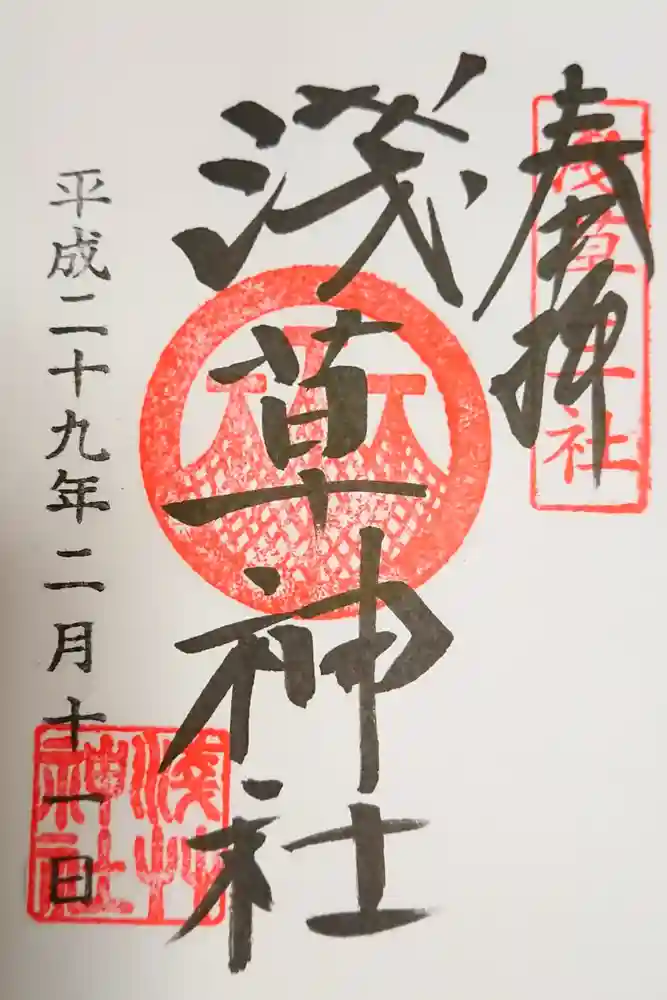 奉拝
浅草神社
淺草神社
平成二十九年二月十一日
浅草神社